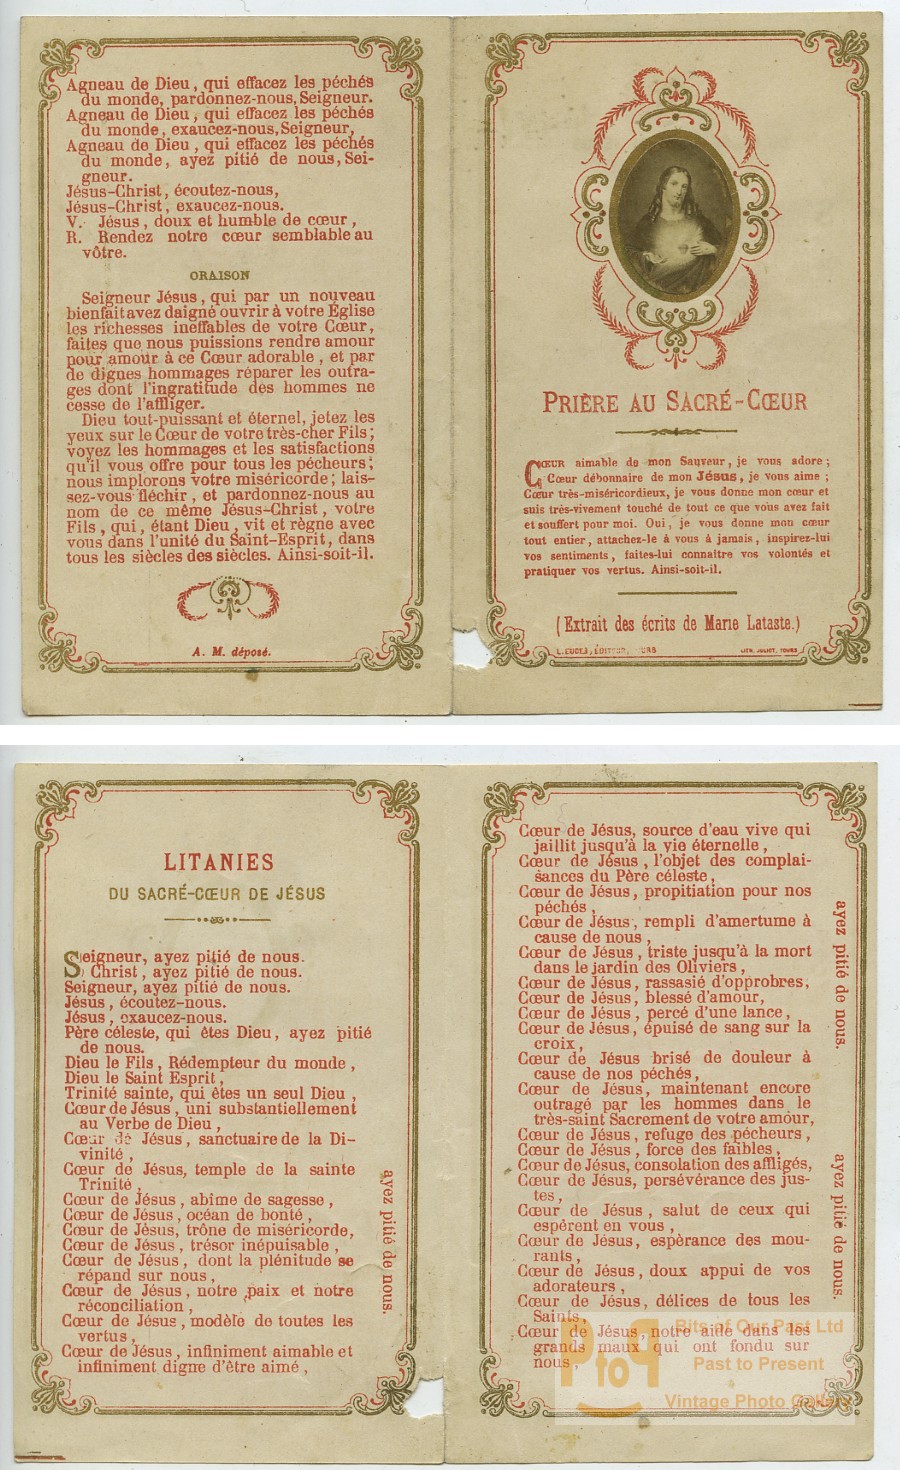 Agneau de Dieu, qui effacez les péchés
du monde, pardonnez-nous, Seigneur.
Agneau de Dieu, qui effacez les péchés
du monde, exaucez-nous, Seigneur,
Agneau de Dieu, qui effacez les péchés
du monde, ayez pitié de nous, Sei-
gneur.
Jésus-Christ, écoutez-nous,
Jésus-Christ, exaucez-nous.
V. Jésus, doux et humble de cœur,
R. Rendez notre cœur semblable au
vôtre.
ORAISON
Seigneur Jésus, qui par un nouveau
bienfait avez daigné ouvrir à votre Église
les richesses ineffables de votre Cœur,
faites que nous puissions rendre amour
pour amour à ce Cœur adorable, et par
de dignes hommages réparer les outra-
ges dont l'ingratitude des hommes ne
cesse de l'affliger.
Dieu tout-puissant et éternel, jetez les
yeux sur le Cœur de votre très-cher Fils;
voyez les hommages et les satisfactions
qu'il vous offre pour tous les pécheurs;
nous implorons votre miséricorde; lais-
sez-vous fléchir, et pardonnez-nous au
nom de ce même Jésus-Christ, votre
Fils, qui, étant Dieu, vit et règne avec
vous dans l'unité du Saint-Esprit, dans
tous les siècles des siècles. Ainsi-soit-il.
A. M. déposé.
PRIÈRE AU SACRÉ-CŒUR
CŒUR aimable de mon Sauveur, je vous adore;
Cœur débonnaire de mon Jésus, je vous aime;
Cœur très-miséricordieux, je vous donne mon cœur et
suis très-vivement touché de tout ce que vous avez fait
et souffert pour moi. Oui, je vous donne mon cœur
tout entier, attachez-le à vous à jamais, inspirez-lui
vos sentiments, faites-lui connaître vos volontés et
pratiquer vos vertus. Ainsi-soit-il.
(Extrait des écrits de Marie Lataste.)
ÉDITEUR,
LITH. JULIOT, TOURS
LITANIES
DU SACRÉ-CŒUR DE JÉSUS
Seigneur, ayez pitié de nous.
Christ, ayez pitié de nous.
Seigneur, ayez pitié de nous.
Jésus, écoutez-nous.
Jésus, exaucez-nous.
Père céleste, qui êtes Dieu, ayez pitié
de nous.
Dieu le Fils, Rédempteur du monde,
Dieu le Saint Esprit,
Trinité sainte, qui êtes un seul Dieu,
Cœur de Jésus, uni substantiellement
au Verbe de Dieu,
Cœur de Jésus, sanctuaire de la Di-
vinité,
Cœur de Jésus, temple de la sainte
Trinité,
Cœur de Jésus, abîme de sagesse,
Cœur de Jésus, océan de bonté,
Cœur de Jésus, trône de miséricorde,
Cœur de Jésus, trésor inépuisable,
Cœur de Jésus, dont la plénitude se
répand sur nous,
Cœur de Jésus, notre paix et notre
réconciliation,
Cœur de Jésus, modèle de toutes les
vertus,
Cœur de Jésus, infiniment aimable et
infiniment digne d'être aimé,
ayez pitié de nous.
Cœur de Jésus, source d'eau vive qui
jaillit jusqu'à la vie éternelle,
Cœur de Jésus, l'objet des complai-
sances du Père céleste,
Cœur de Jésus, propitiation pour nos
péchés,
Cœur de Jésus, rempli d'amertume à
cause de nous,
Cœur de Jésus, triste jusqu'à la mort
dans le jardin des Oliviers,
Cœur de Jésus, rassasié d'opprobres,
Cœur de Jésus, blessé d'amour,
Cœur de Jésus, percé d'une lance,
Cœur de Jésus, épuisé de sang sur la
croix,
Cœur de Jésus brisé de douleur à
cause de nos péchés,
Cœur de Jésus, maintenant encore
outragé par les hommes dans le
très-saint Sacrement de votre amour,
Cœur de Jésus, refuge des pécheurs,
Cœur de Jésus, force des faibles,
Cœur de Jésus, consolation des affligés,
Cœur de Jésus, persévérance des jus-
tes,
Cœur de Jésus, salut de ceux qui
espèrent en vous,
Cœur de Jésus, espèrance des mou-
rants,
Cœur de Jésus, doux appui de vos
adorateurs,
Cœur de Jésus, délices de tous les
Saints,
Cœur de Jésus, notre aide dans les
grands maux qui ont fondu sur
nous,
ayez pitié de nous.
ayez pitié de nous.
PtoP
Bits of Our Past Ltd
Past to Present
Vintage Photo Gallery